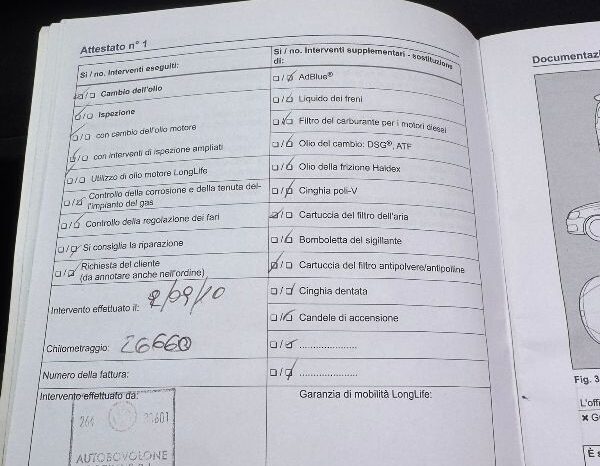 Attestato n° 1
Si / no. Interventi eseguiti:
☐/☐ Cambio dell'olio
☐/☐ Ispezione
☐/☐ con cambio dell'olio motore
☐/☐ con interventi di ispezione ampliati
☐/☐ Utilizzo di olio motore LongLife
☐/☐ Controllo della corrosione e della tenuta del-
l'impianto del gas
☐/☐ Controllo della regolazione dei fari
☐/☐ Si consiglia la riparazione
☐/☐ Richiesta del cliente
(da annotare anche nell'ordine)
Intervento effettuato il: 2/09/10
Chilometraggio: 26660
Numero della fattura:
Intervento effettuato da:
264 30601
AUTOBOVOLONE
Si / no. Interventi supplementari - sostituzione
di:
☐/☐ AdBlue®
☐/☐ Liquido dei freni
☐/☐ Filtro del carburante per i motori diesel
☐/☐ Olio del cambio: DSG®, ATF
☐/☐ Olio della frizione Haldex
☐/☐ Cinghia poli-V
☐/☐ Cartuccia del filtro dell'aria
☐/☐ Bomboletta del sigillante
☐/☐ Cartuccia del filtro antipolvere/antipolline
☐/☐ Cinghia dentata
☐/☐ Candele di accensione
☐/☐ .....................
☐/☐ .....................
Garanzia di mobilità LongLife:
Fig. 3
L'offi
✖ G
È s